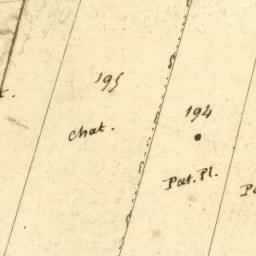 195
chat.
194
Pat. Pl.